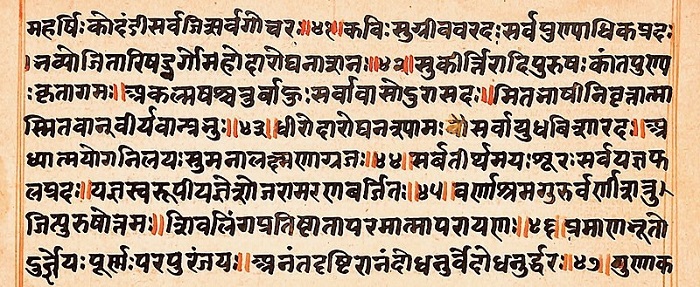 महर्षिः कोदंडी सर्वजित्सर्वगोचरः॥४१॥कविः सुग्रीववरदः सर्वपुण्याधिकप्रदः
।नव्योजितारिषड्वर्गोमहोदारोघनाशनः॥४२॥सुकीर्त्तिरादिपुरुषः कांतपुण्य
ःकृतागमः॥अकल्मषश्चतुर्बाहुः सर्वावासोदुरासदः॥स्मितभाषीनिवृत्तात्मा
स्मितवान्वीर्यवान्प्रभुः॥४३॥धीरोदारोघनश्यामः सर्वायुधविशारदः॥अ
ध्यात्मयोगनिलयः सुमनालक्ष्मणाग्रजः॥४४॥सर्वतीर्थमयः शूरः सर्वयज्ञफ
लप्रदः॥यज्ञस्वरूपीयज्ञेशोजरामरणवर्जितः॥४५॥वर्णाश्रमगुरुर्वर्णीशत्रु
जित्पुरुषोत्तमः॥शिवलिंगप्रतिष्ठातापरमात्मापरायणः॥४६॥प्रमाणभूतो
दुर्ज्ञेयः पूर्णः परपुरंजयः॥अनंतदृष्टिरानंदोधनुर्वेदोधनुर्द्धरः॥४७॥गुणाक